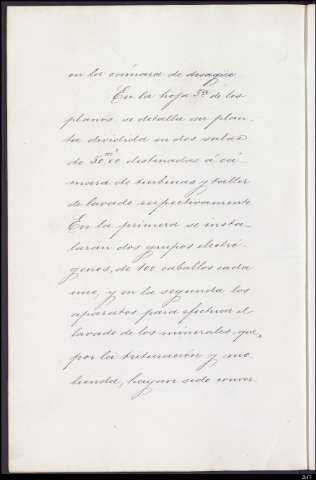 en la cámara de desagüe.
En la hoja 3ª de los
planos se detalla su plan-
ta dividida en dos salas
de 50,00 destinadas á cá-
mara de turbinas y taller
de lavado respectivamente.
En la primera se insta-
larán dos grupos electró-
genos, de 100 caballos cada
uno, y en la segunda los
aparatos para efectuar el
lavado de los minerales, que,
por la trituración y mo-
lienda, hayan sido conver-